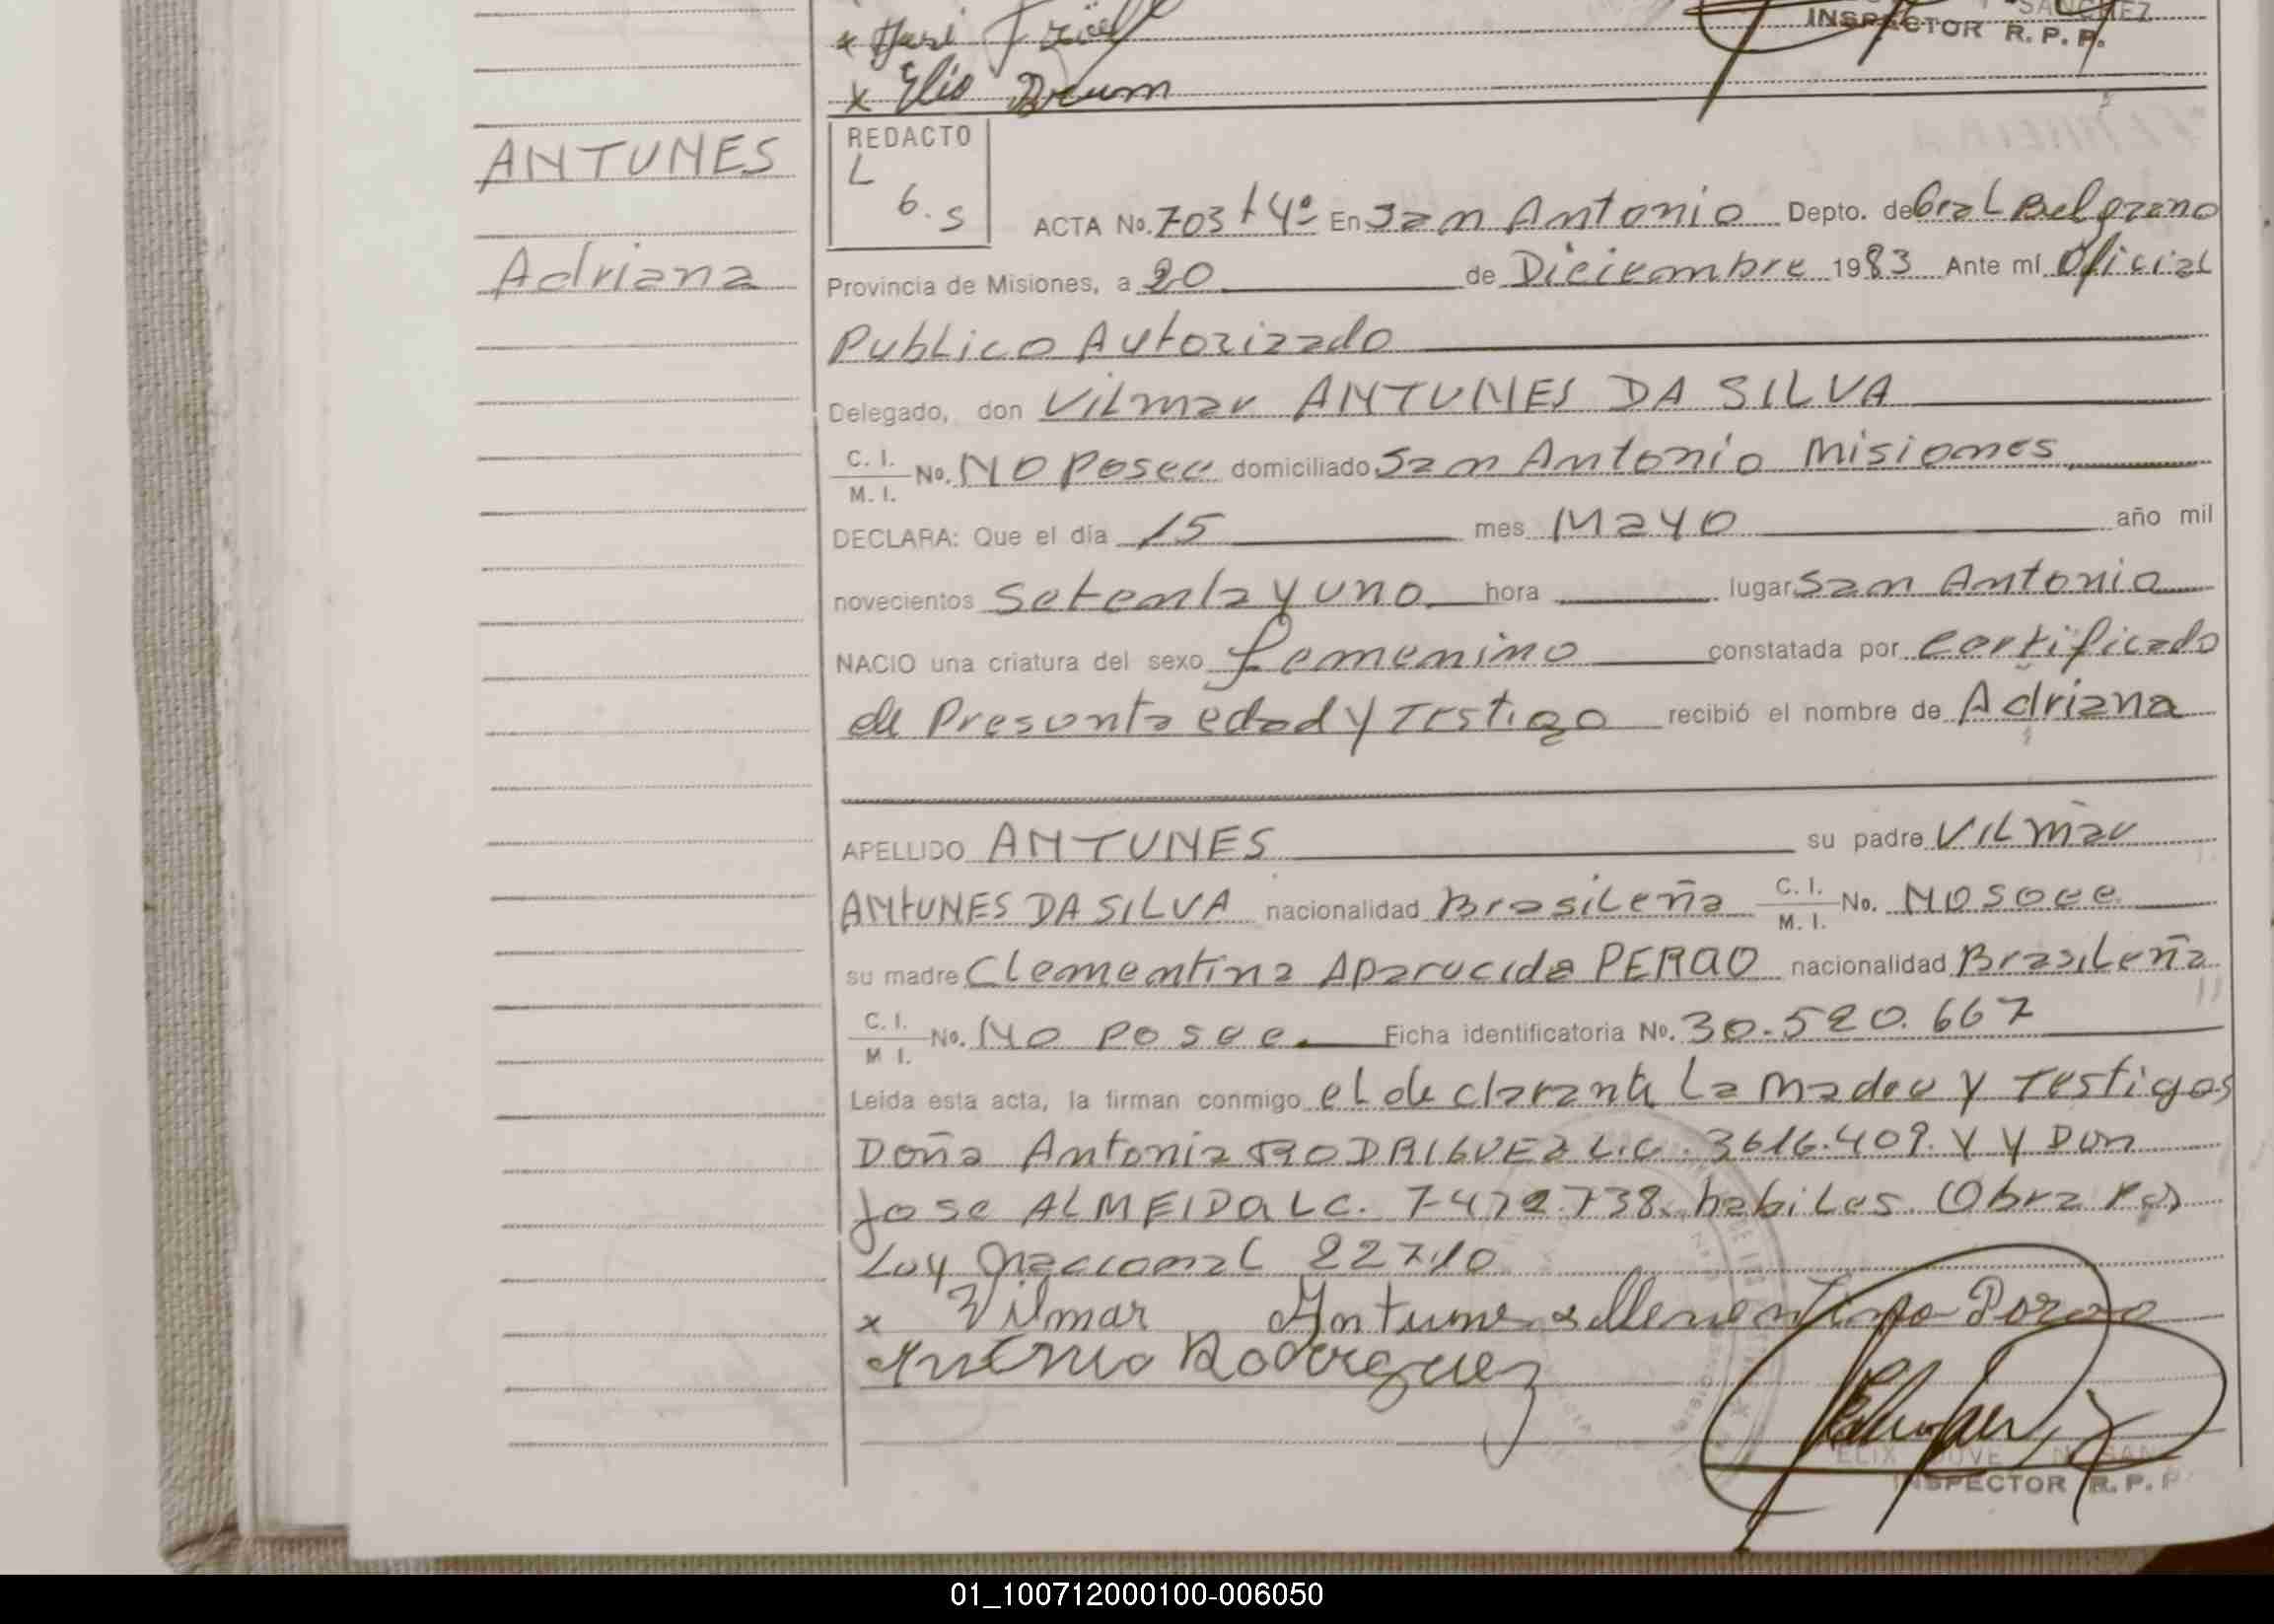 SANCHEZ
INSPECTOR R. P. P.
x Elio
ANTUNES
Adriana
REDACTO
L
6. S
ACTA No. 703 t 4º En San Antonio Depto. de Gral Belgrano
Provincia de Misiones, a 20 de Diciembre 1983 Ante mí Oficial
Publico Autorizado
Delegado, don Vilmar ANTUNES DA SILVA
C. I.
M. I. No. NO Posee domiciliado San Antonio Misiones
DECLARA: Que el día 15 mes Mayo año mil
novecientos setenta y uno hora lugar San Antonio
NACIO una criatura del sexo femenino constatada por certificado
de Presunta edad y Testigo recibió el nombre de Adriana
APELLIDO ANTUNES su padre VILmar
ANtUNES DA SILVA nacionalidad Brasileña C. I.
M. I. No. NO SOEE
su madre Clementina Aparecida PERAO nacionalidad Brasileña
C. I.
M I. No. NO Posee. Ficha identificatoria No. 30.520.667
Leída esta acta, la firman conmigo el declarante La Madre y Testigos
Doña Antonia RODRIGUEZ L.C. 3616.409. Y Y Don
Jose ALMEIDA LC. 7-472.738. habiles. Obra Por
Ley Nacional 22710
x Vilmar Antunes x Clementina Porao
Antonio Rodriguez
INSPECTOR R. P. P
01_100712000100-006050